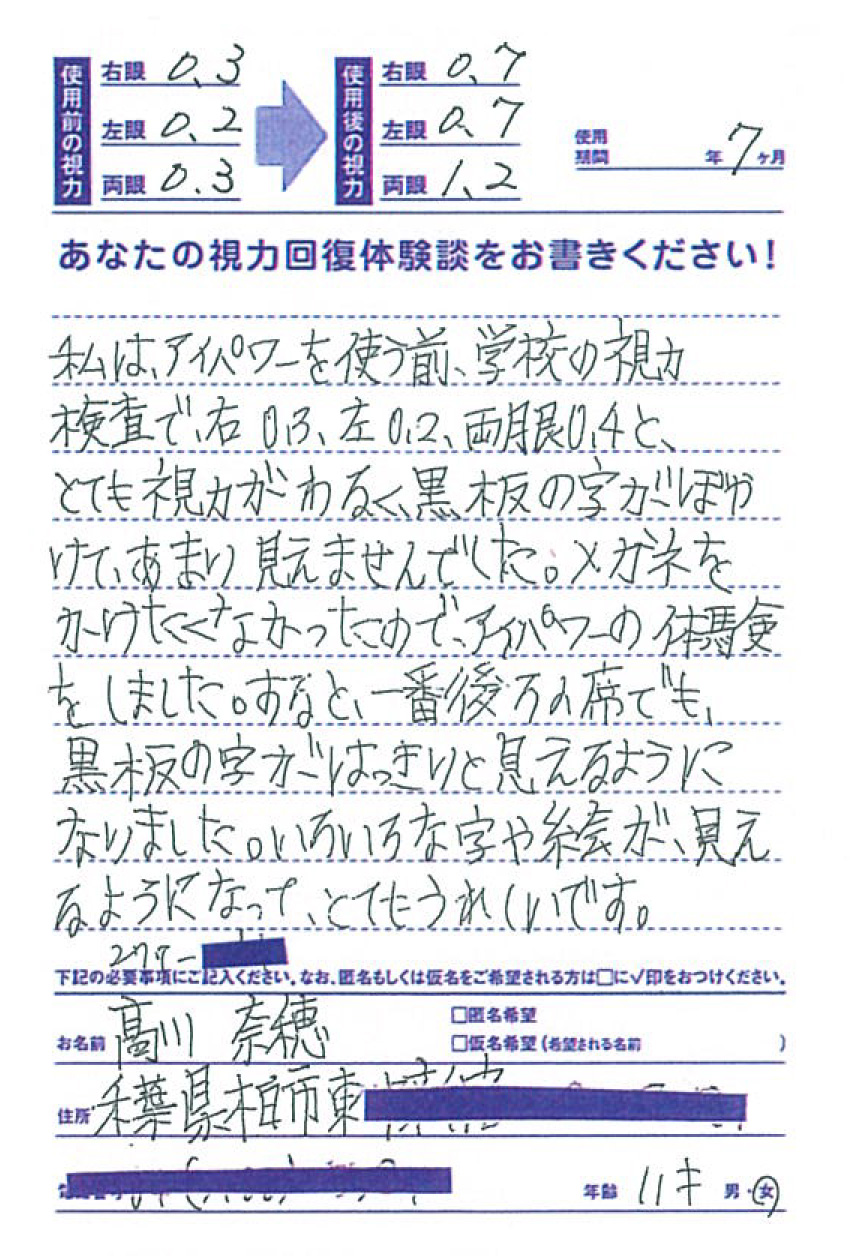 使用前の視力
右眼 0.3
左眼 0.2
両眼 0.3
使用後の視力
右眼 0.7
左眼 0.7
両眼 1.2
使用期間 年 7ヶ月
あなたの視力回復体験談をお書きください!
私は、アイパワーを使う前、学校の視力
検査で、右0.3、左0.2、両眼0.4と、
とても視力がわるく、黒板の字がぼや
けて、あまり見えませんでした。メガネを
かけたくなかったので、アイパワーの体験
をしました。すると、一番後ろの席でも、
黒板の字がはっきりと見えるように
なりました。いろいろな字や絵が、見え
るようになって、とてもうれしいです。
277-
下記の必要事項にご記入ください。なお、匿名もしくは仮名をご希望される方は□に✓印をおつけください。
お名前 髙川 奈穂
□匿名希望
□仮名希望(希望される名前 )
住所 千葉県柏市東
年齢 11才 男・女